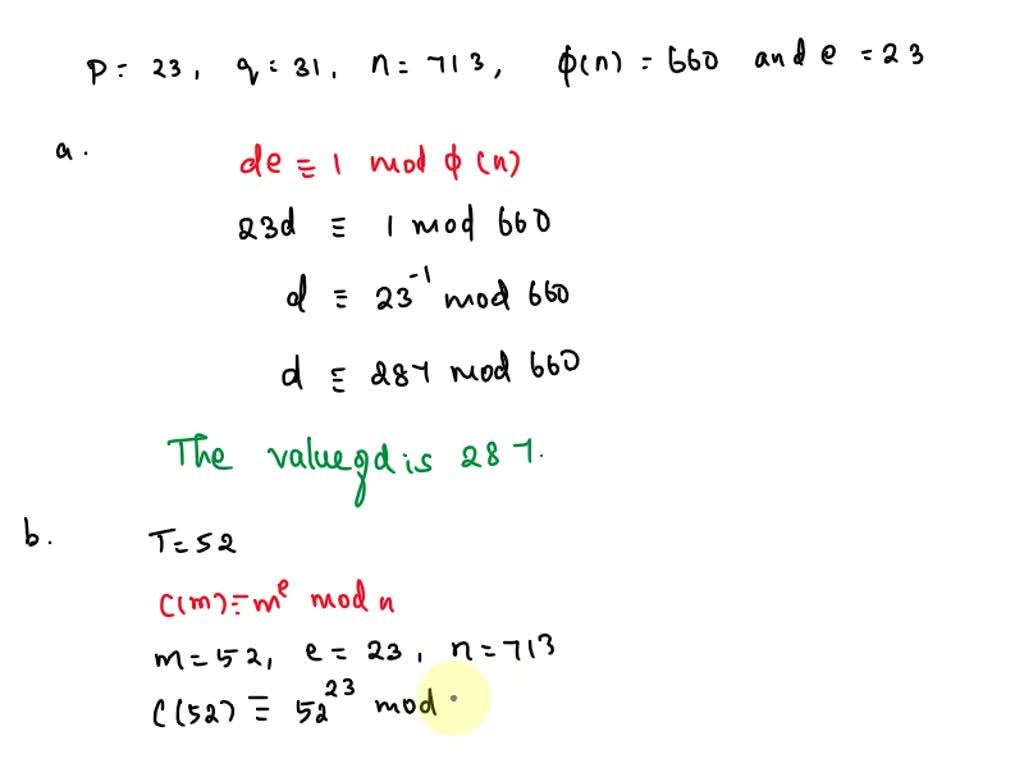 p = 23, q = 31, n = 713, ϕ(n) = 660 and e = 23
a.
de ≡ 1 mod ϕ(n)
23d ≡ 1 mod 660
d ≡ 23⁻¹ mod 660
d ≡ 287 mod 660
The value of d is 287.
b.
T = 52
C(m) ≡ mᵉ mod n
m = 52, e = 23, n = 713
C(52) ≡ 52²³ mod